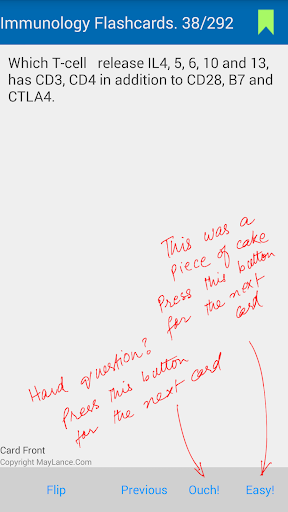 Immunology Flashcards. 38/292
Which T-cell release IL4, 5, 6, 10 and 13,
has CD3, CD4 in addition to CD28, B7 and
CTLA4.
This was a
Piece of cake
Press this button
for the next
card
Hard question?
Press this button
for the next card
Card Front
Copyright MayLance.Com
Flip
Previous
Ouch!
Easy!